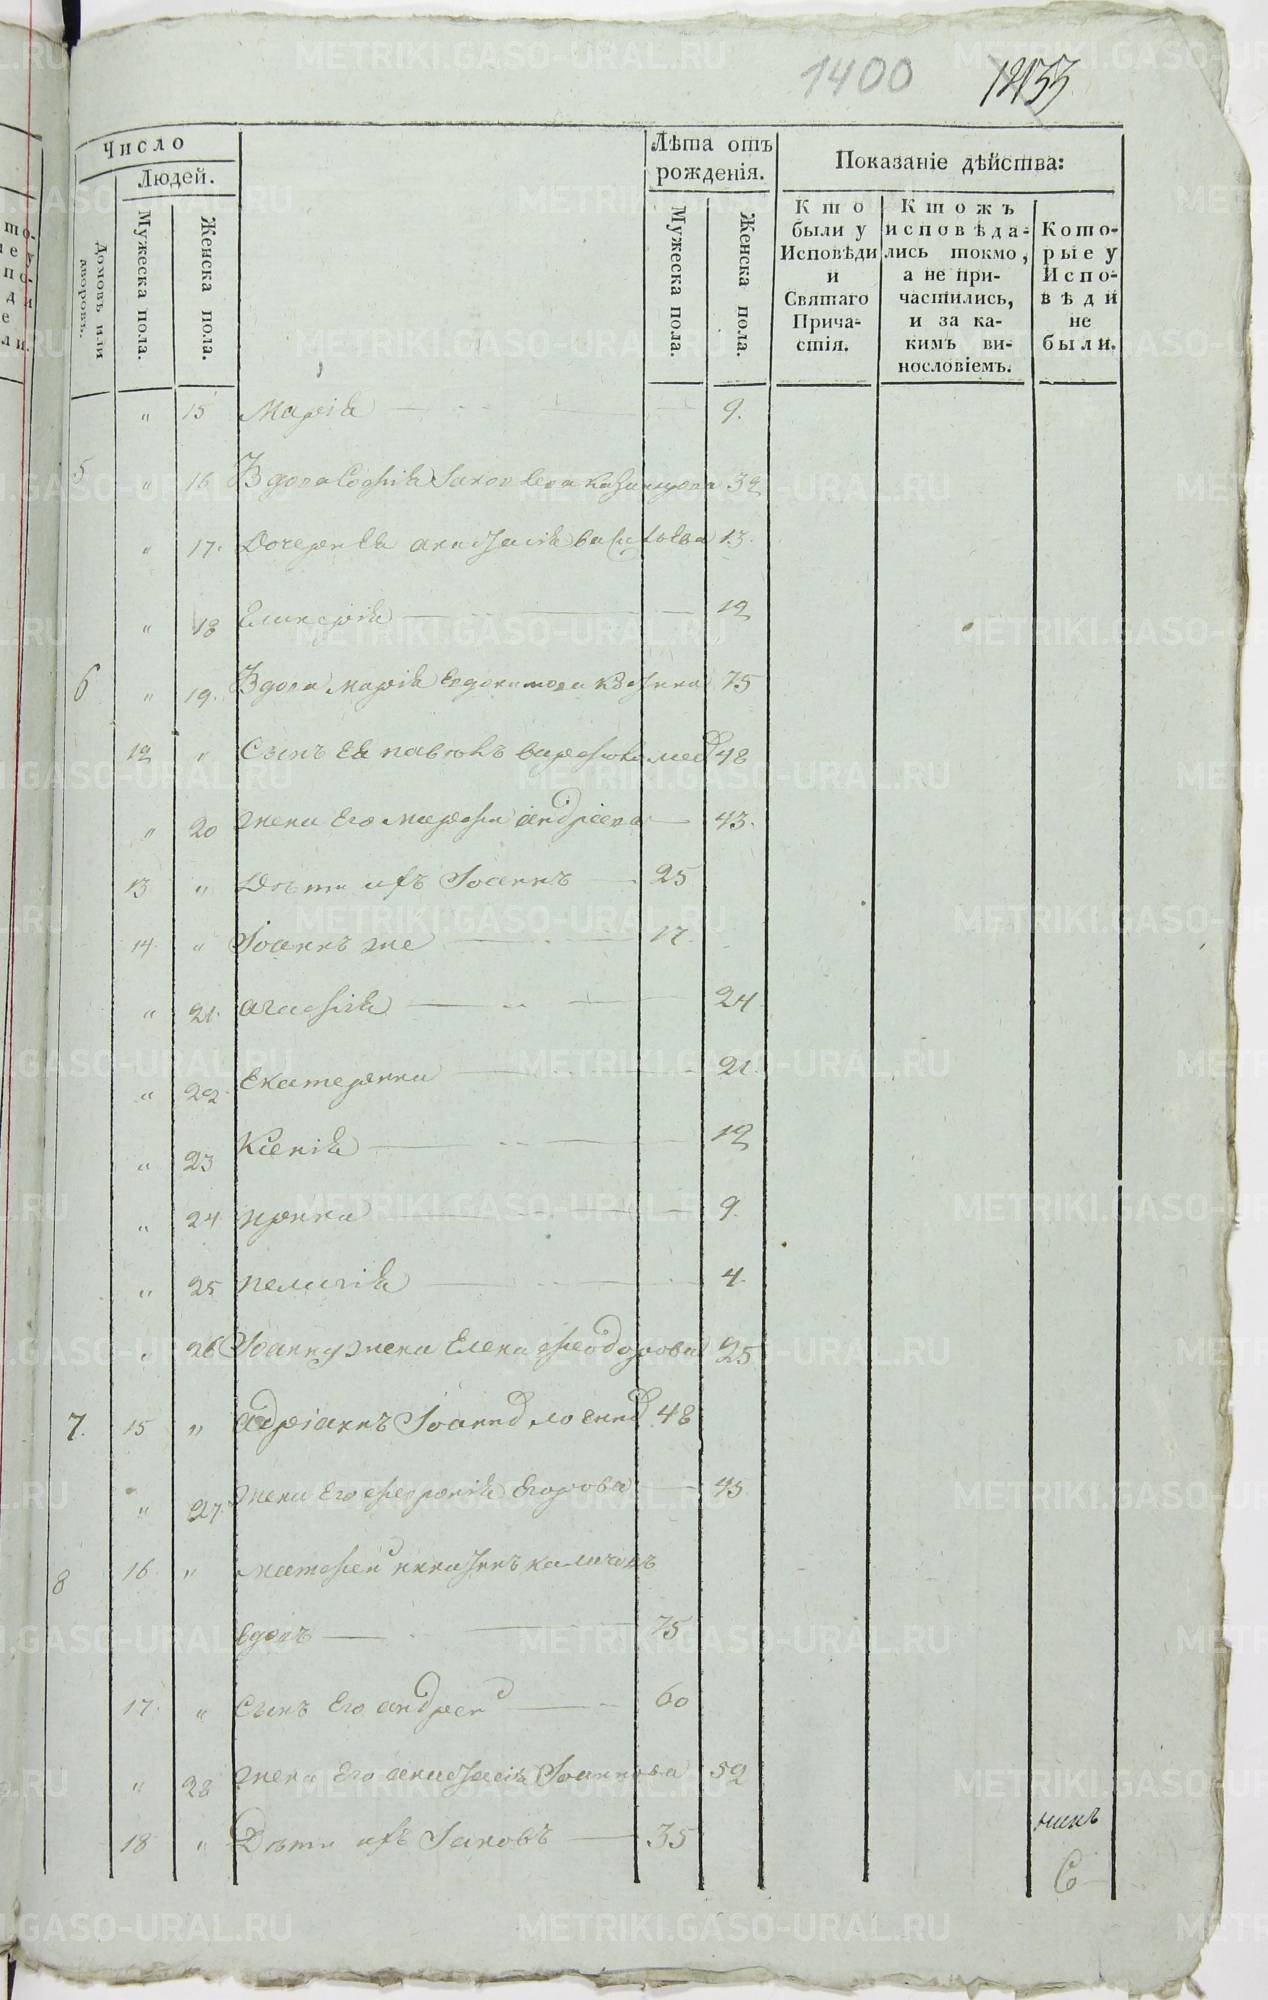 1400 1433
Число
Людей.
Домовъ или дворовъ.
Мужеска пола.
Женска пола.
Лѣта отъ рожденія.
Мужеска пола.
Женска пола.
Показаніе дѣйства:
Кто были у Исповѣди и Святаго Причастія.
Ктожъ исповѣдались токмо, а не причастились, и за какимъ винословіемъ.
Которые у Исповѣди не были.
" 15 Марія 9.
5 " 16 Вдова Софія Іаковлева 32
" 17. Дочери Ея Анастасія Васильева 13.
" 18 Гликерія 12
6 " 19. Вдова Марія Евдокимова 75
12 " Сынъ Ея Варфоломей 48
" 20 Жена Его Марфа Андріева 43.
13 " Дѣти ихъ Іоаннъ 25
14. " Іоаннъ же 17.
" 21. Агафія 24
" 22 Екатерина 21.
" 23 Ксенія 12
" 24 Ирина 9.
" 25 Пелагія 4.
" 26 Іоанну жена Елена Феодорова 25
7. 15 " Адріанъ Іоанно 48
" 27. Жена Его Феоронія Егорова 45
8 16 " Матфей
вдовъ 75
17. " Сынъ Его Андрей 60
" 28 Жена Его Анастасія Іоаннова 52
18 " Дѣти ихъ Іаковъ 35